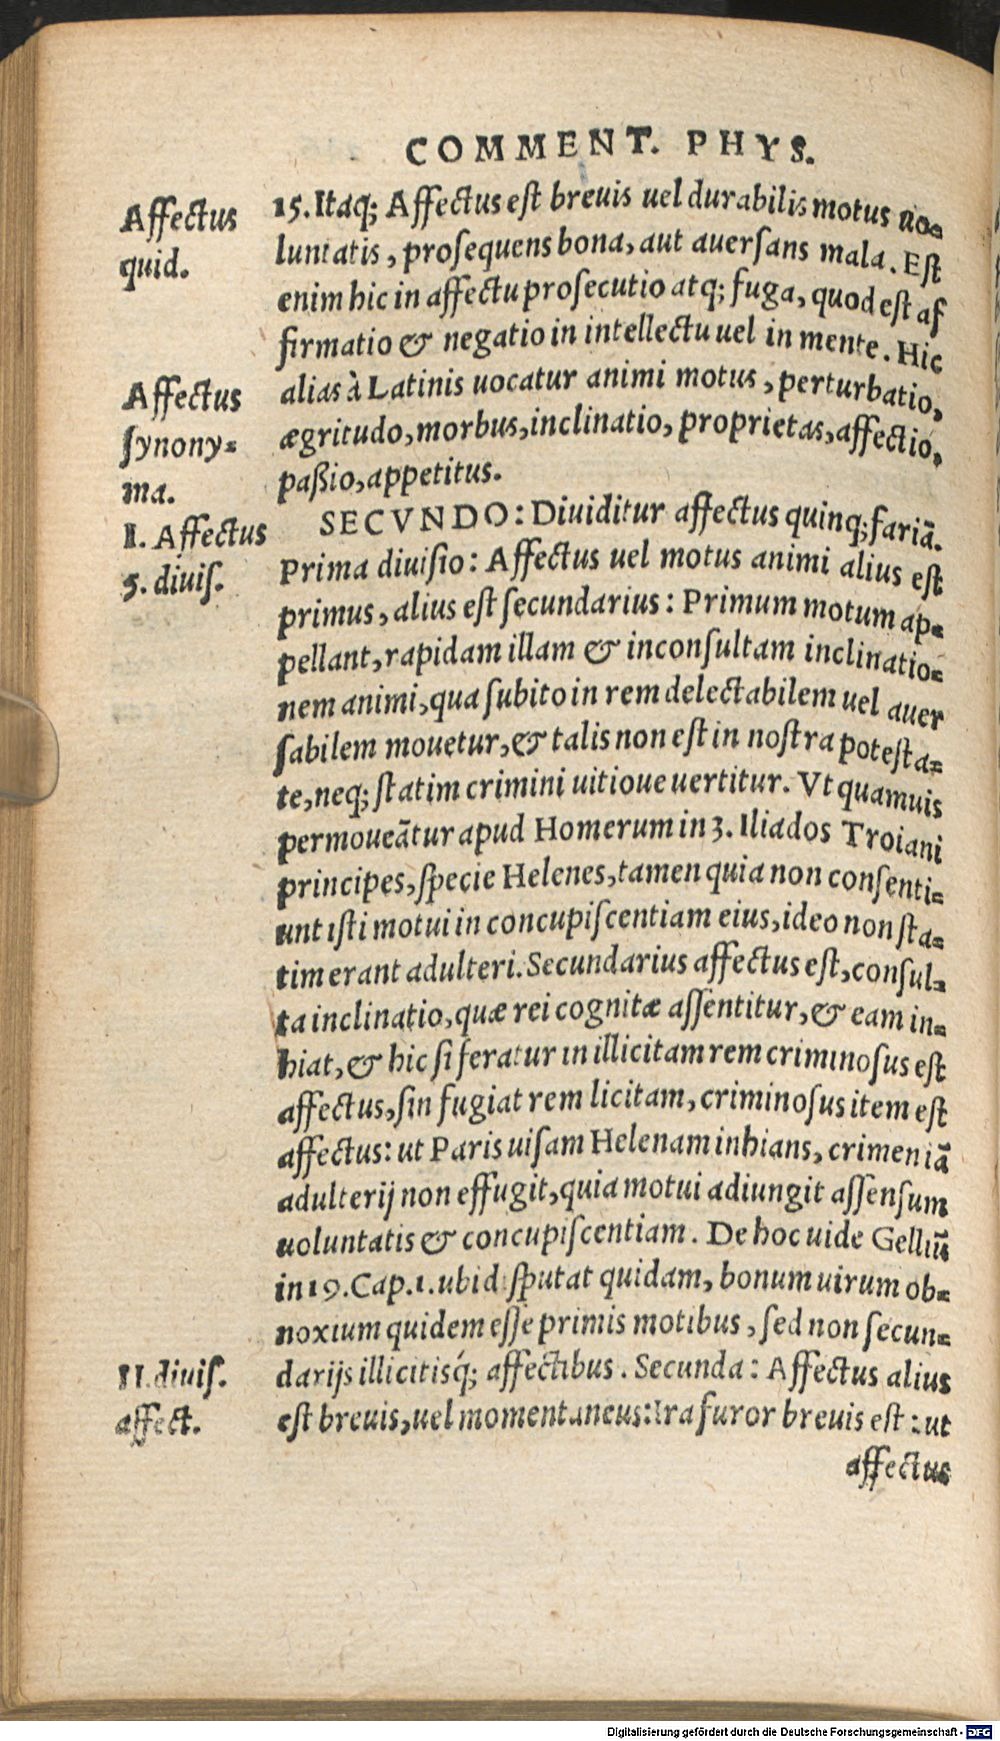 COMMENT. PHYS.
Affectus
quid.
15. Itaq; Affectus est breuis uel durabilis motus uo-
luntatis, prosequens bona, aut auersans mala. Est
enim hic in affectu prosecutio atq; fuga, quod est af
firmatio & negatio in intellectu uel in mente. Hic
Affectus
synony-
ma.
alias à Latinis uocatur animi motus, perturbatio,
ægritudo, morbus, inclinatio, proprietas, affectio,
paßio, appetitus.
I. Affectus
5. diuis.
SECVNDO: Diuiditur affectus quinq; fariã.
Prima diuisio: Affectus uel motus animi alius est
primus, alius est secundarius: Primum motum ap-
pellant, rapidam illam & inconsultam inclinatio-
nem animi, qua subito in rem delectabilem uel auer
sabilem mouetur, & talis non est in nostra potesta-
te, neq; statim crimini uitioue uertitur. Vt quamuis
permoueãtur apud Homerum in 3. Iliados Troiani
principes, specie Helenes, tamen quia non consenti-
unt isti motui in concupiscentiam eius, ideo non sta-
tim erant adulteri. Secundarius affectus est, consul-
ta inclinatio, quæ rei cognitæ assentitur, & eam in-
hiat, & hic si feratur in illicitam rem criminosus est
affectus, sin fugiat rem licitam, criminosus item est
affectus: ut Paris uisam Helenam inhians, crimen iã
adulterij non effugit, quia motui adiungit assensum
uoluntatis & concupiscentiam. De hoc uide Gelliũ
in 19. Cap. 1. ubi disputat quidam, bonum uirum ob-
noxium quidem esse primis motibus, sed non secun-
II. diuis.
affect.
darijs illicitisq́; affectibus. Secunda: Affectus alius
est breuis, uel momentaneus: Ira furor breuis est: ut
affectus
Digitalisierung gefördert durch die Deutsche Forschungsgemeinschaft - DFG